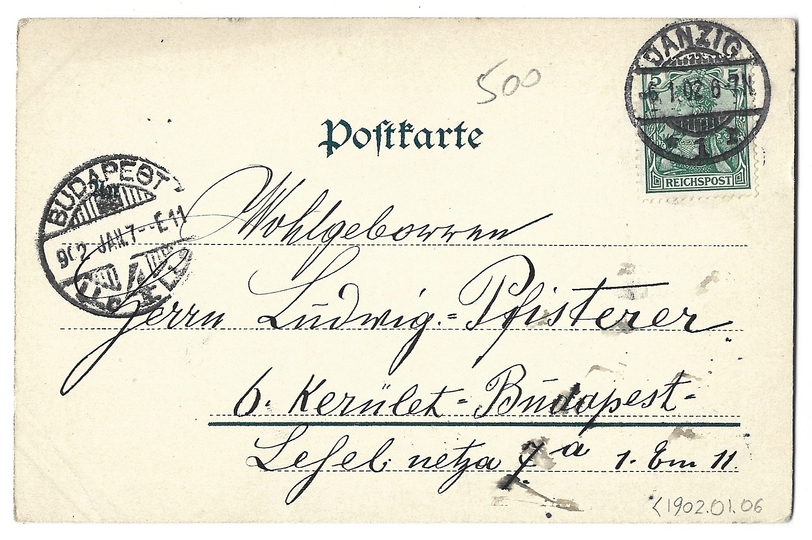 500
DANZIG
5 5
6.1.02 6-7N.
* 1 *
REICHSPOST
Postkarte
BUDAPEST
902 JAN. 7 - E.11
Wohlgeborren
Herrn Ludwig = Pfisterer
6. Kerület - Budapest -
netza 7 a 1. Em 11.
<1902.01.06